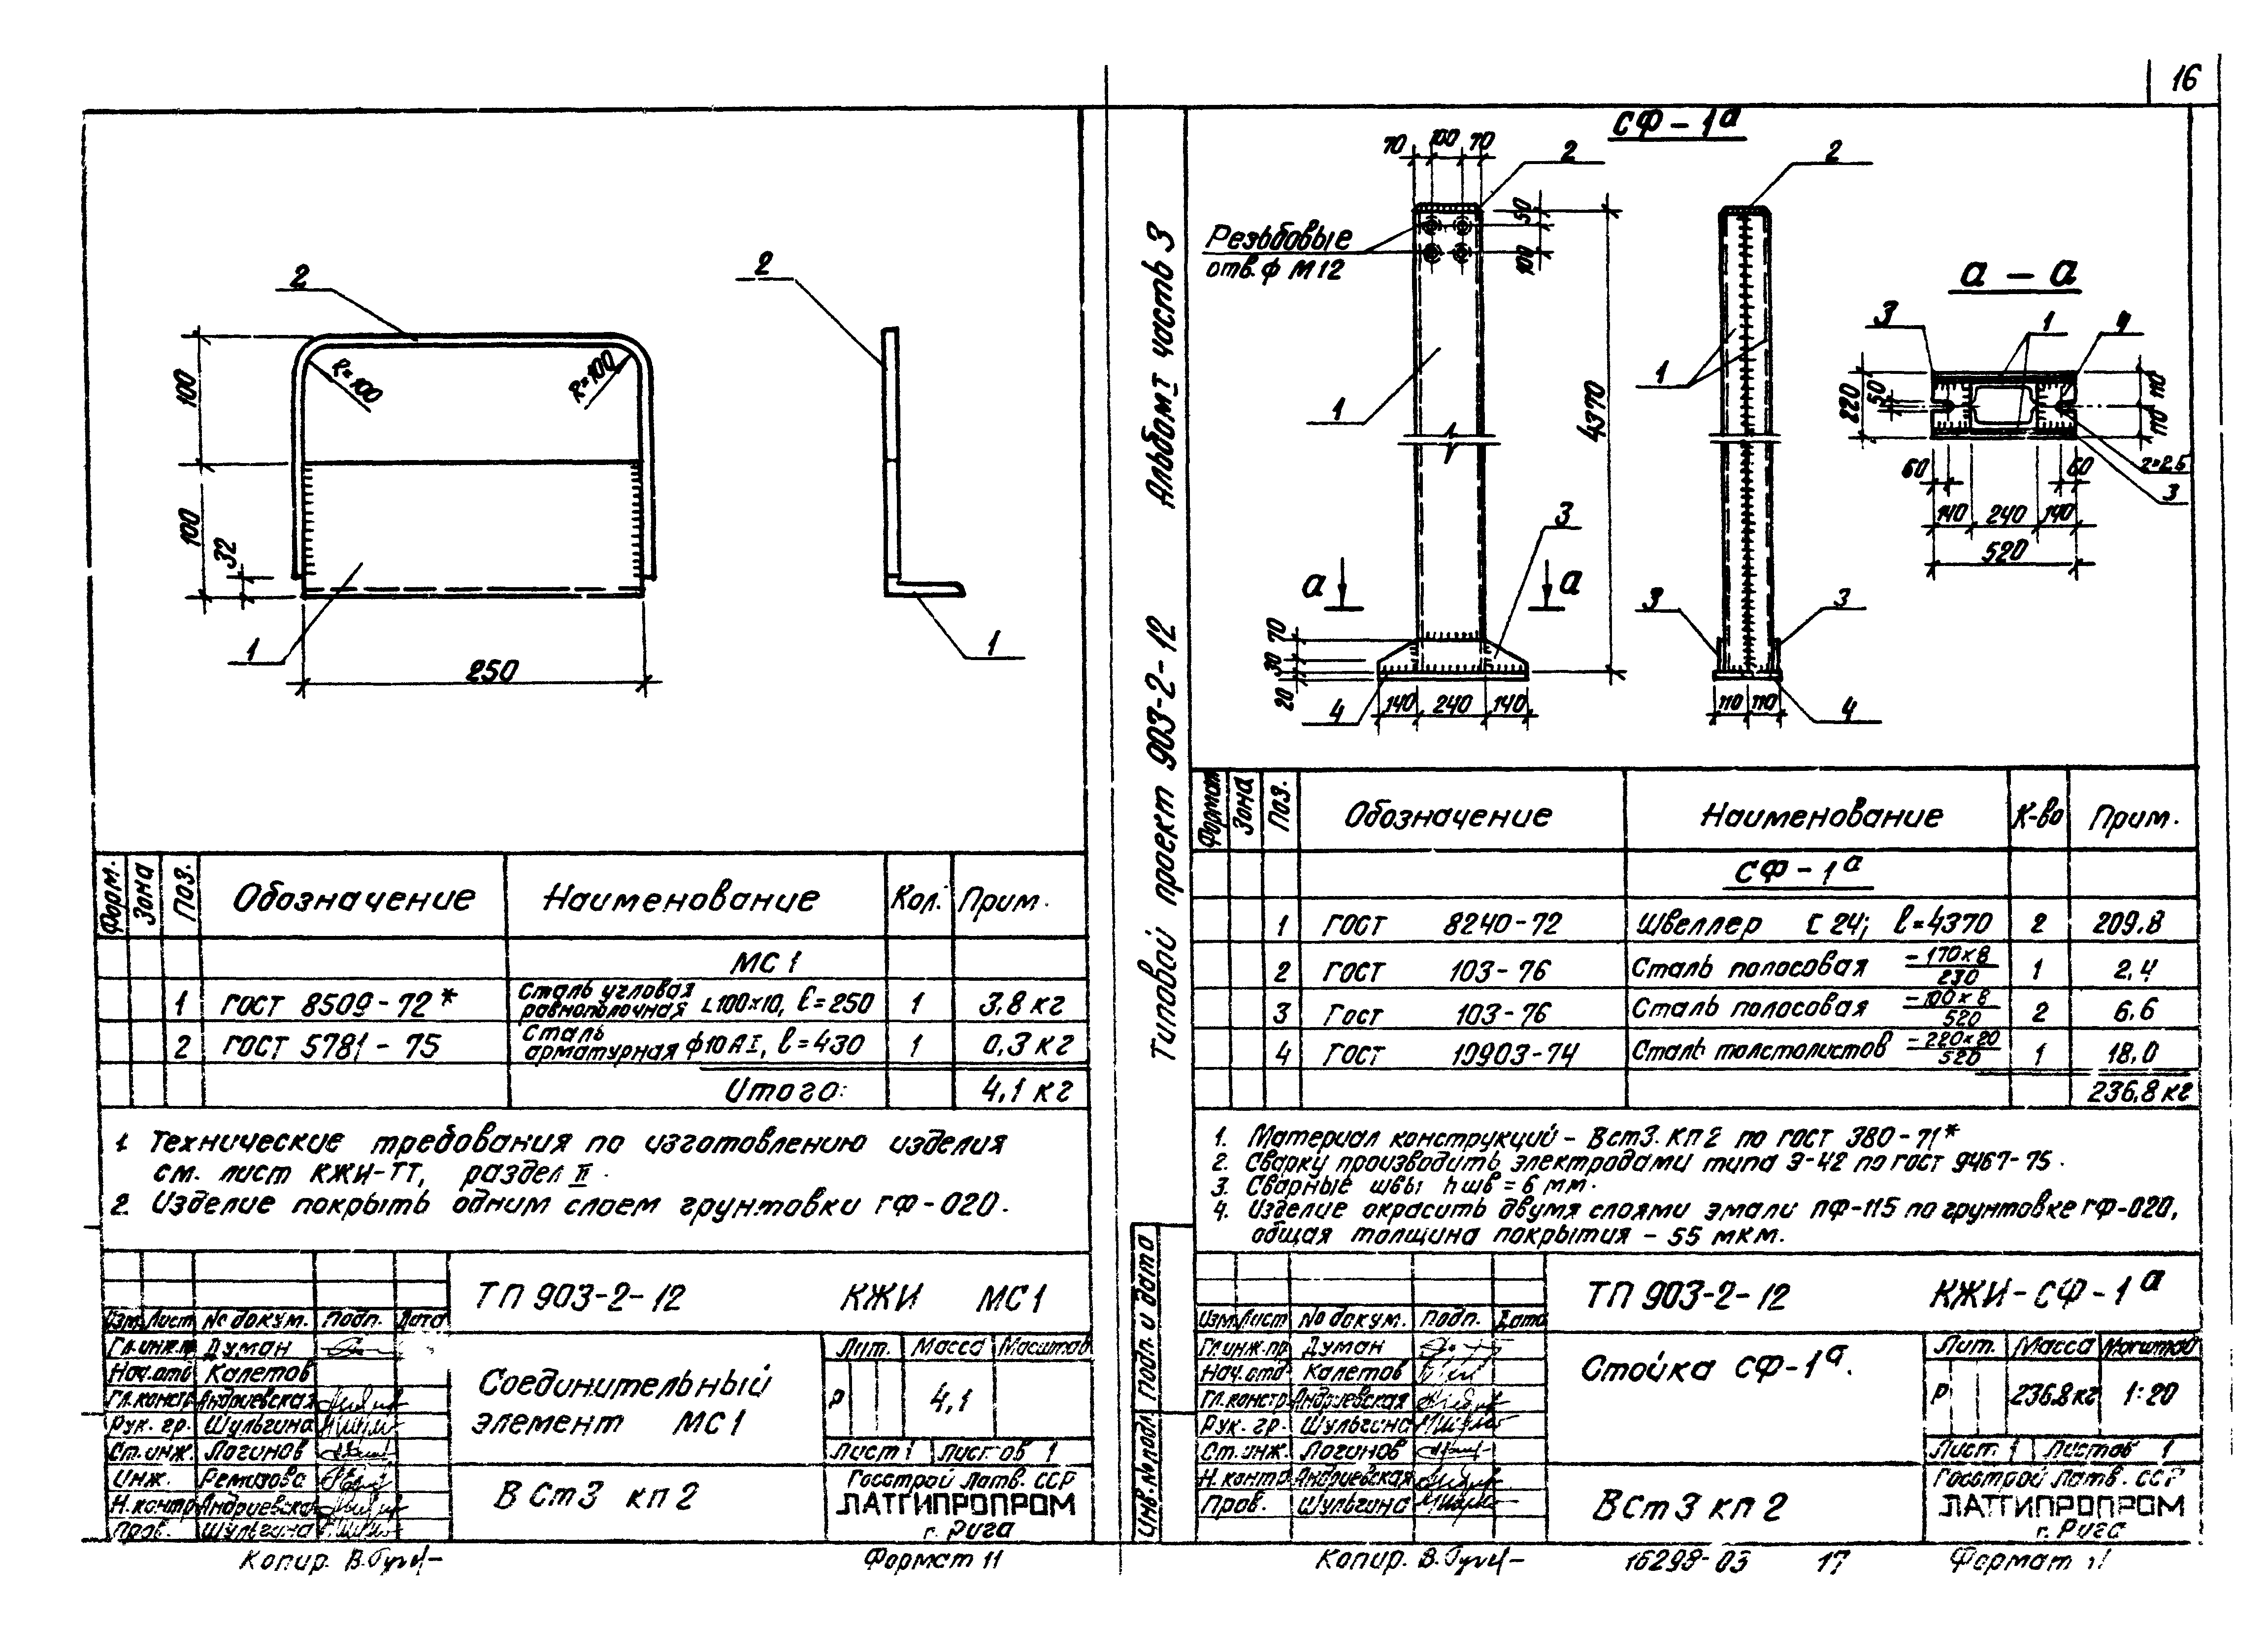 16
2
2
100
100
32
R=100
R=100
1
1
250
Форм.
Зона
Поз.
Обозначение
Наименование
Кол.
Прим.
МС 1
1 ГОСТ 8509-72* Сталь угловая равнополочная L100×10, ℓ=250 1 3,8 кг
2 ГОСТ 5781-75 Сталь арматурная ф10 А I, ℓ=430 1 0,3 кг
Итого: 4,1 кг
1. Технические требования по изготовлению изделия
см. лист КЖИ-ТТ, раздел II.
2. Изделие покрыть одним слоем грунтовки ГФ-020.
ТП 903-2-12 КЖИ МС1
Изм. Лист № докум. Подп. Дата
Гл.инж.пр Думан
Нач.отд Калетов
Гл.констр. Андриевская
Рук. гр. Шульгина
Ст.инж. Логинов
Инж. Ремизова
Н.контр. Андриевская
Пров. Шульгина
Соединительный
элемент МС1
ВСт3 кп2
Лит. Масса Масштаб
Р 4,1
Лист 1 Листов 1
Госстрой Латв. ССР
ЛАТГИПРОПРОМ
г. Рига
Копир.
Формат 11
Типовой проект 903-2-12 Альбом I часть 3
Инв.№подл.
Подп. и дата
СФ-1а
70 100 70
2
Резьбовые
отв. ф М12
50
100
1
4370
3
а а
70
30
20
4
140 240 140
2
1
3
3
110 110
4
а - а
3
1
4
220
50
110
110
60
60
2=2,5
3
140 240 140
520
Формат
Зона
Поз.
Обозначение
Наименование
К-во
Прим.
СФ-1а
1 ГОСТ 8240-72 Швеллер [ 24; ℓ=4370 2 209.8
2 ГОСТ 103-76 Сталь полосовая -170×8/230 1 2,4
3 Гост 103-76 Сталь полосовая -100×8/520 2 6.6
4 ГОСТ 19903-74 Сталь толстолистов -220×20/520 1 18,0
236,8 кг
1. Материал конструкций - ВСт3.кп2 по ГОСТ 380-71*
2. Сварку производить электродами типа Э-42 по ГОСТ 9467-75.
3. Сварные швы hшв = 6 мм.
4. Изделие окрасить двумя слоями эмали ПФ-115 по грунтовке ГФ-020,
общая толщина покрытия - 55 мкм.
ТП 903-2-12 КЖИ-СФ-1а
Изм. Лист № докум. Подп. Дата
Гл.инж.пр Думан
Нач.отд Калетов
Гл.констр. Андриевская
Рук. гр. Шульгина
Ст.инж. Логинов
Н.контр. Андриевская
Пров. Шульгина
Стойка СФ-1а.
ВСт3 кп2
Лит. Масса Масштаб
Р 236.8 кг 1:20
Лист 1 Листов 1
Госстрой Латв. ССР
ЛАТГИПРОПРОМ
г. Рига
Копир.
16298-03 17
Формат 11